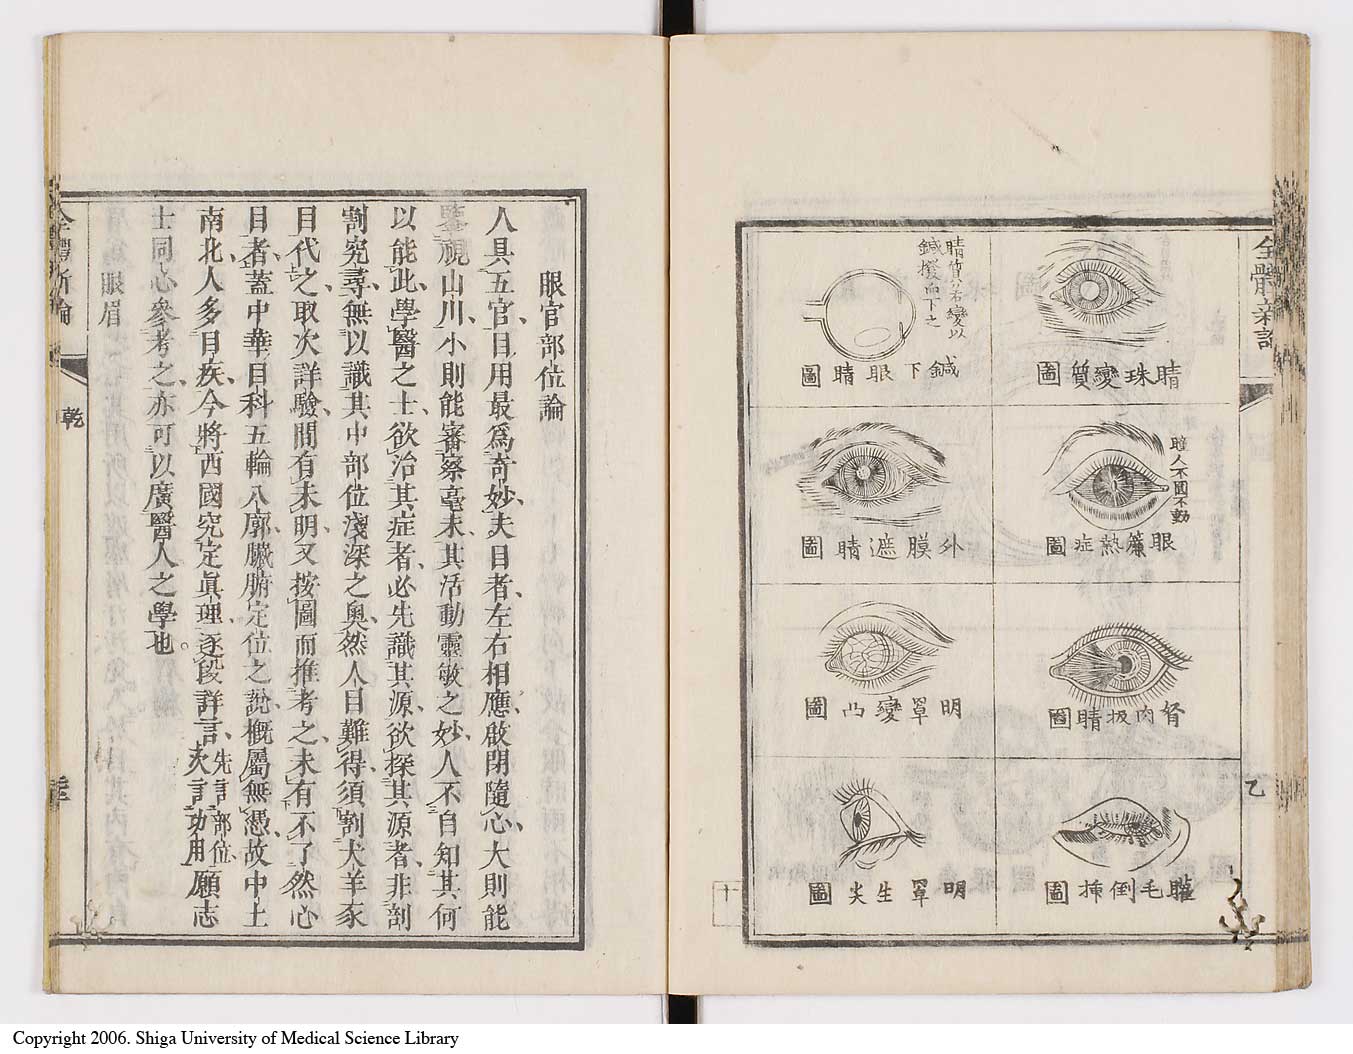 全體新論
睛珠變質圖
睛質旣變以
鍼撥而下之
鍼下眼睛圖
瞳人不圓不動
眼簾熱症圖
外膜遮睛圖
胬肉扳睛圖
明罩變凸圖
睫毛倒揷圖
明罩生尖圖
乙
十
眼官部位論
人具五官目用最爲奇妙、夫目者、左右相應、啟閉隨心、大則能
鑒視山川、小則能審察毫末、其活動靈敏之妙、人不自知其何
以能此、學醫之士、欲治其症者、必先識其源、欲探其源者、非剖
割究尋、無以識其中部位淺深之奧、然人目難得、須割犬羊豕
目代之、取次詳驗、間有未明、又按圖而推考之、未有不了然心
目者、蓋中華目科五輪八廓、臟腑定位之說、槪屬無憑、故中土
南北、人多目疾、今將西國究定眞理、逐段詳言、先言部位
次言功用願志
士同心參考之、亦可以廣醫人之學也。
眼眉
全體新論
乾